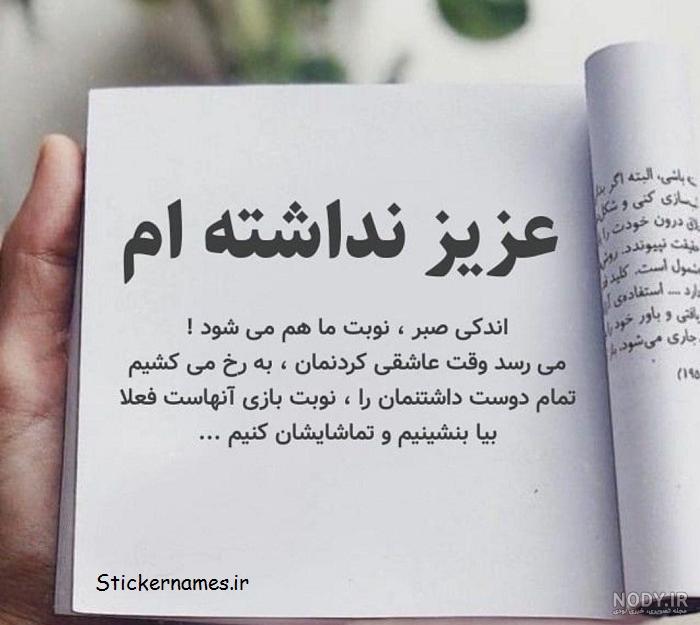 عزیز نداشته ام
اندکی صبر ، نوبت ما هم می شود !
می رسد وقت عاشقی کردنمان ، به رخ می کشیم
تمام دوست داشتنمان را ، نوبت بازی آنهاست فعلا
بیا بنشینیم و تماشایشان کنیم ...
باشی، البته اگر
سازی کنی و
درون خودت را
نپیوندد.
است. کلید
.... استفاده‌ی
و باور خود
جاری می‌شود.
Stickernames.ir
NODY.IR
مجله تصویری، خبری نودی